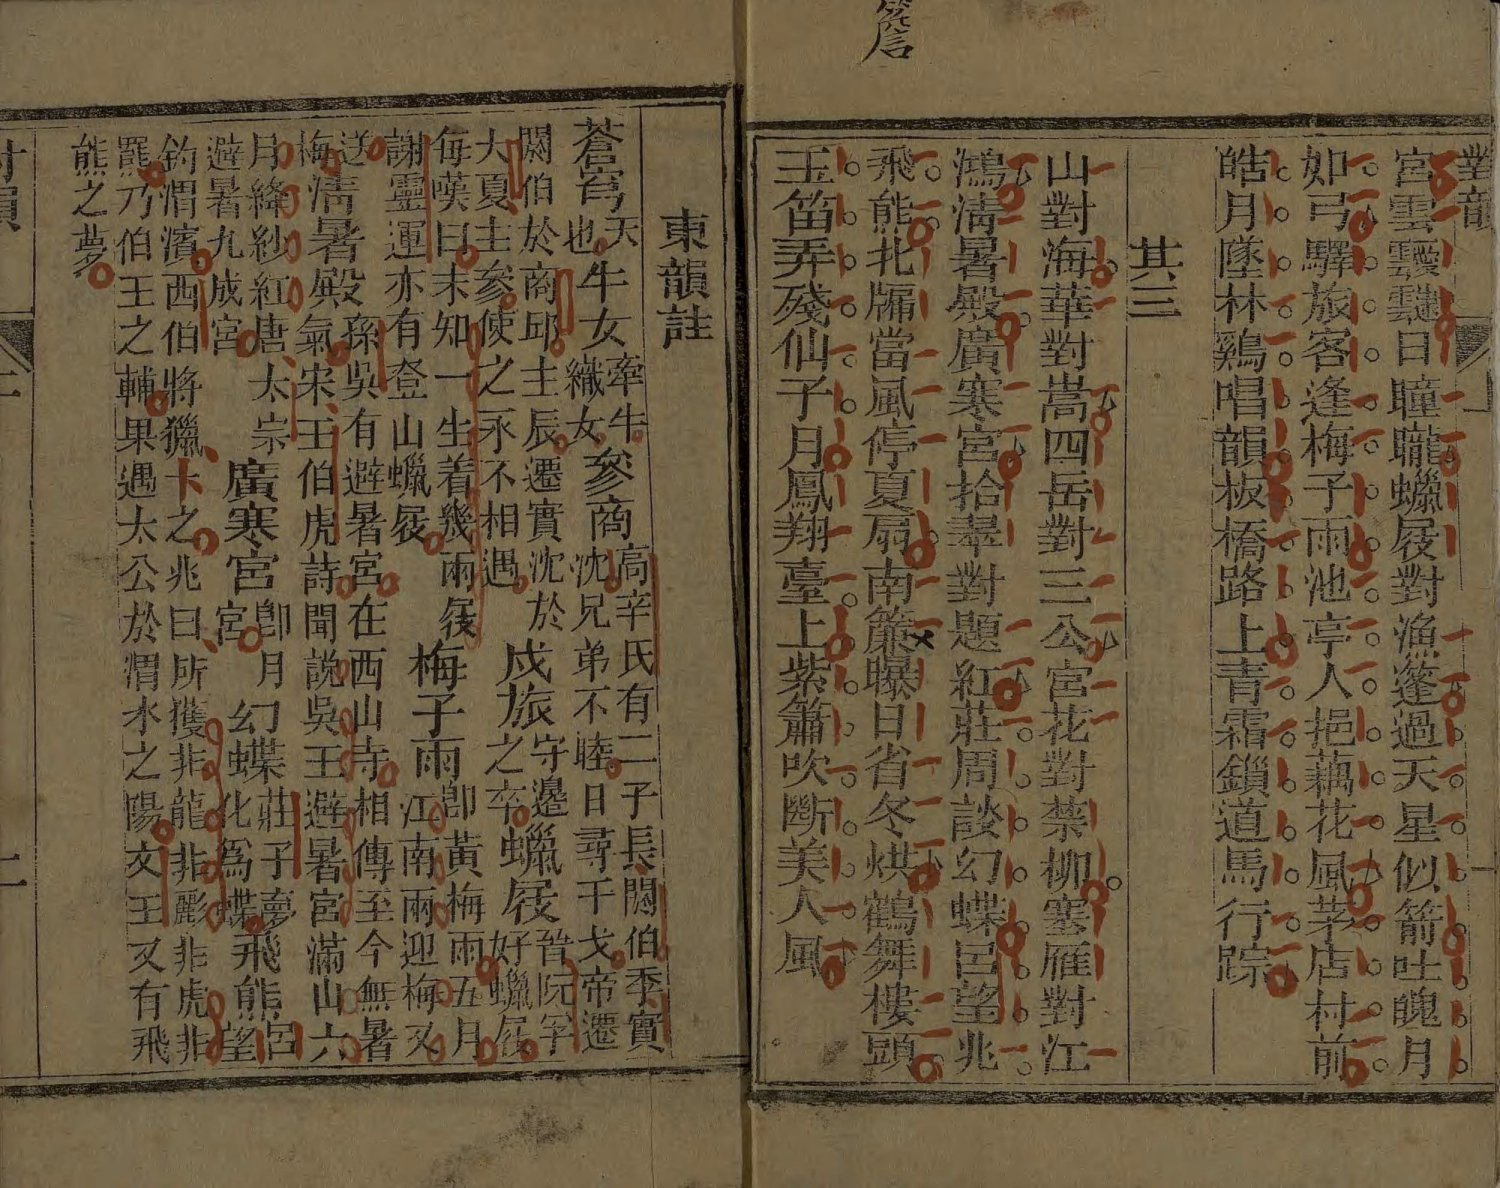 對韻
宮雲靉靆日曈曨蠟屐對漁蓬過天星似箭吐魄月
如弓驛旅客逢梅子雨池亭人挹藕花風茅店村前
皓月墜林鷄唱韻板橋路上青霜鎖道馬行踪
其三
山對海華對嵩四岳對三公宮花對禁柳塞雁對江
鴻淸暑殿廣寒宮拾翠對題紅莊周談幻蝶呂望兆
飛熊北牖當風停夏扇南簾曝日省冬烘鶴舞樓頭
玉笛弄殘仙子月鳳翔臺上紫簫吹斷美人風
東韻註
蒼穹天也牛女牽牛織女參商高辛氏有二子長閼伯季實沈兄弟不睦日尋干戈帝遷
閼伯於商邱主辰遷實沈於大夏主參使之永不相遇戍旅守邊之卒蠟屐晉阮孚好蠟屐
每嘆曰未知一生着幾兩屐謝靈運亦有登山蠟屐梅子雨卽黃梅雨五月江南雨迎梅又
送梅淸暑殿孫吳有避暑宮在西山寺相傳至今無暑氣宋王伯虎詩聞說吳王避暑宮滿山六
月絳紗紅唐太宗避暑九成宮廣寒宮卽月宮幻蝶莊子夢化爲蝶飛熊呂望
釣渭濱西伯將獵卜之兆曰所獲非龍非彲非虎非
羆乃伯王之輔果遇太公於渭水之陽文王又有飛
熊之夢